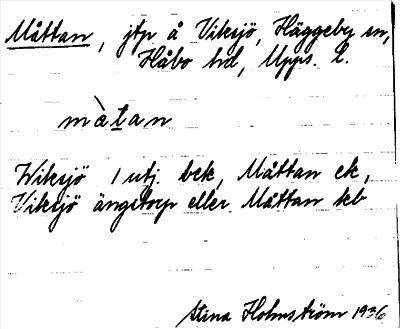 Måttan, jtp å Viksjö, Häggeby sn,
Håbo hd, Upps. l.
mȧ̀tan
Wiksjö 1 utj. bek, Måttan ek,
Viksjö ängstorp eller Måttan kb
Stina Holmström 1936